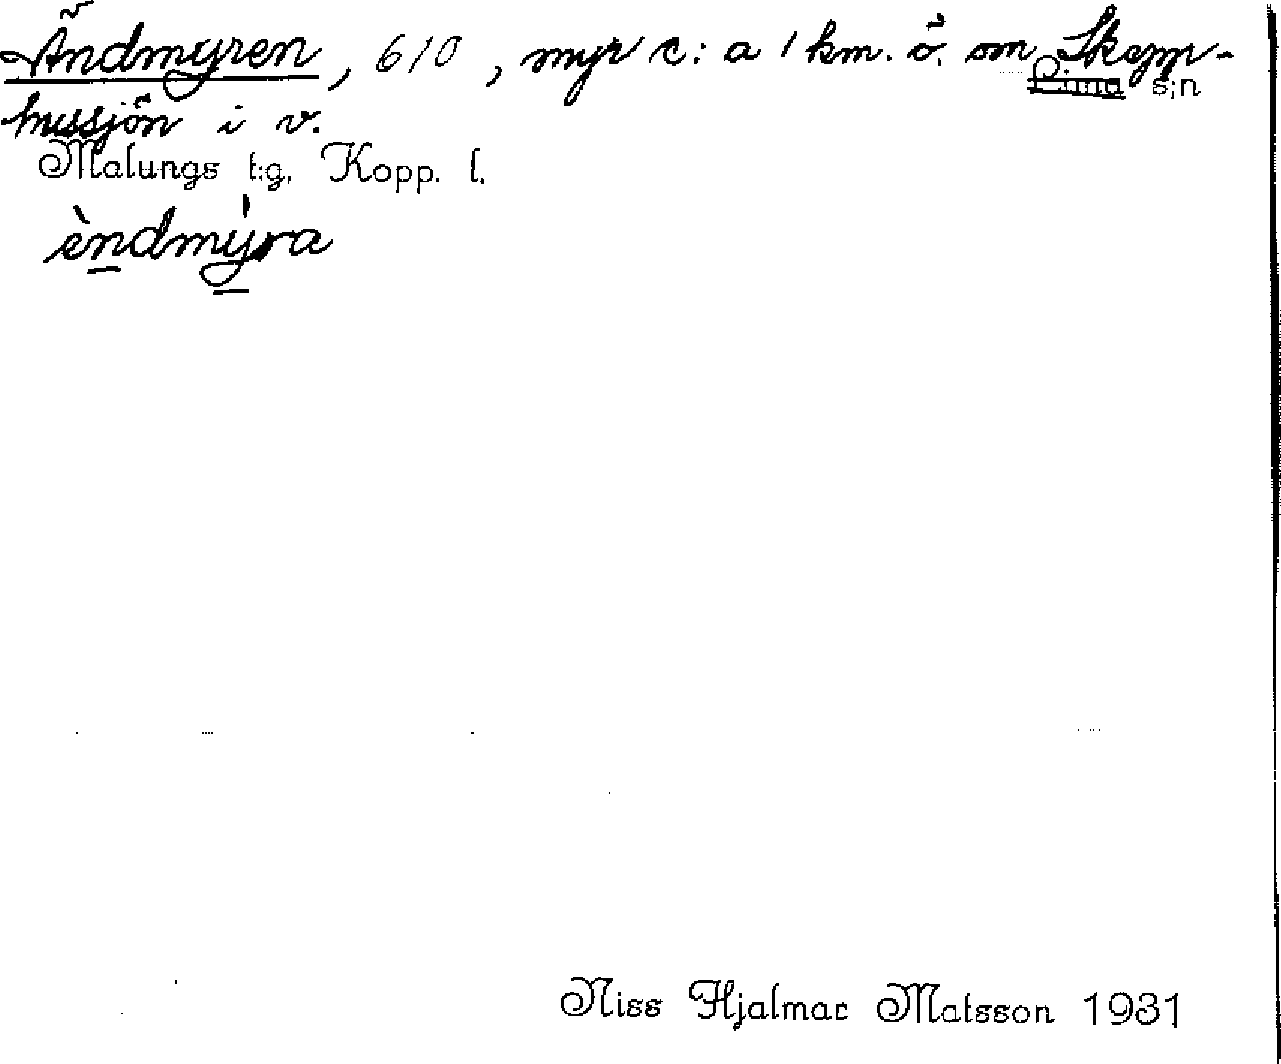 Ändmyren, 610, myr c:a 1 km. ö. om Skepp-
Lima s:n
hussjön i v.
Malungs t:g, Kopp. l.
èndmýra
Niss Hjalmar Matsson 1931